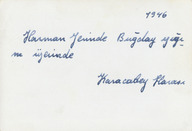 1946
Harman Yerinde Buğday yığı-
nı üzerinde
Karacabey Harası